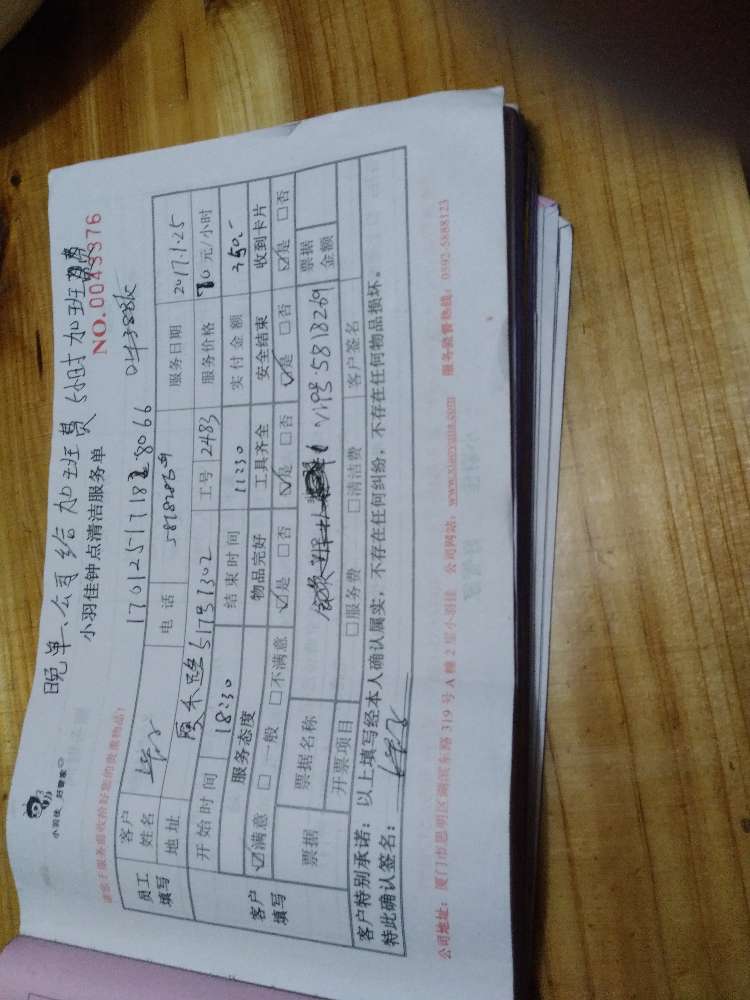 晚单、公司给加班费 5小时加班费
小羽佳 好管家
小羽佳钟点清洁服务单
NO.0043376
请您于服务前收拾好您的贵重物品!
170125171828066
员工填写
客户姓名
电话 5818286
服务日期 2017.1.25
地址
517号1302
工号 2483
服务价格 70元/小时
开始时间 18:30
结束时间 11:30
实付金额 350.-
客户填写
服务态度 物品完好 工具齐全 安全结束 收到卡片
☑满意 □一般 □不满意 ☑是 □否 ☑是 □否 ☑是 □否 ☑是 □否
票据
票据名称
5818269
票据金额
开票项目 □服务费 □清洁费 客户签名
客户特别承诺:以上填写经本人确认属实,不存在任何纠纷,不存在任何物品损坏。
特此确认签名:
公司地址:厦门市思明区湖滨东路319号A幢2层小羽佳 公司网站:www.xiaoyujia.com 服务监督热线:0592-5888123